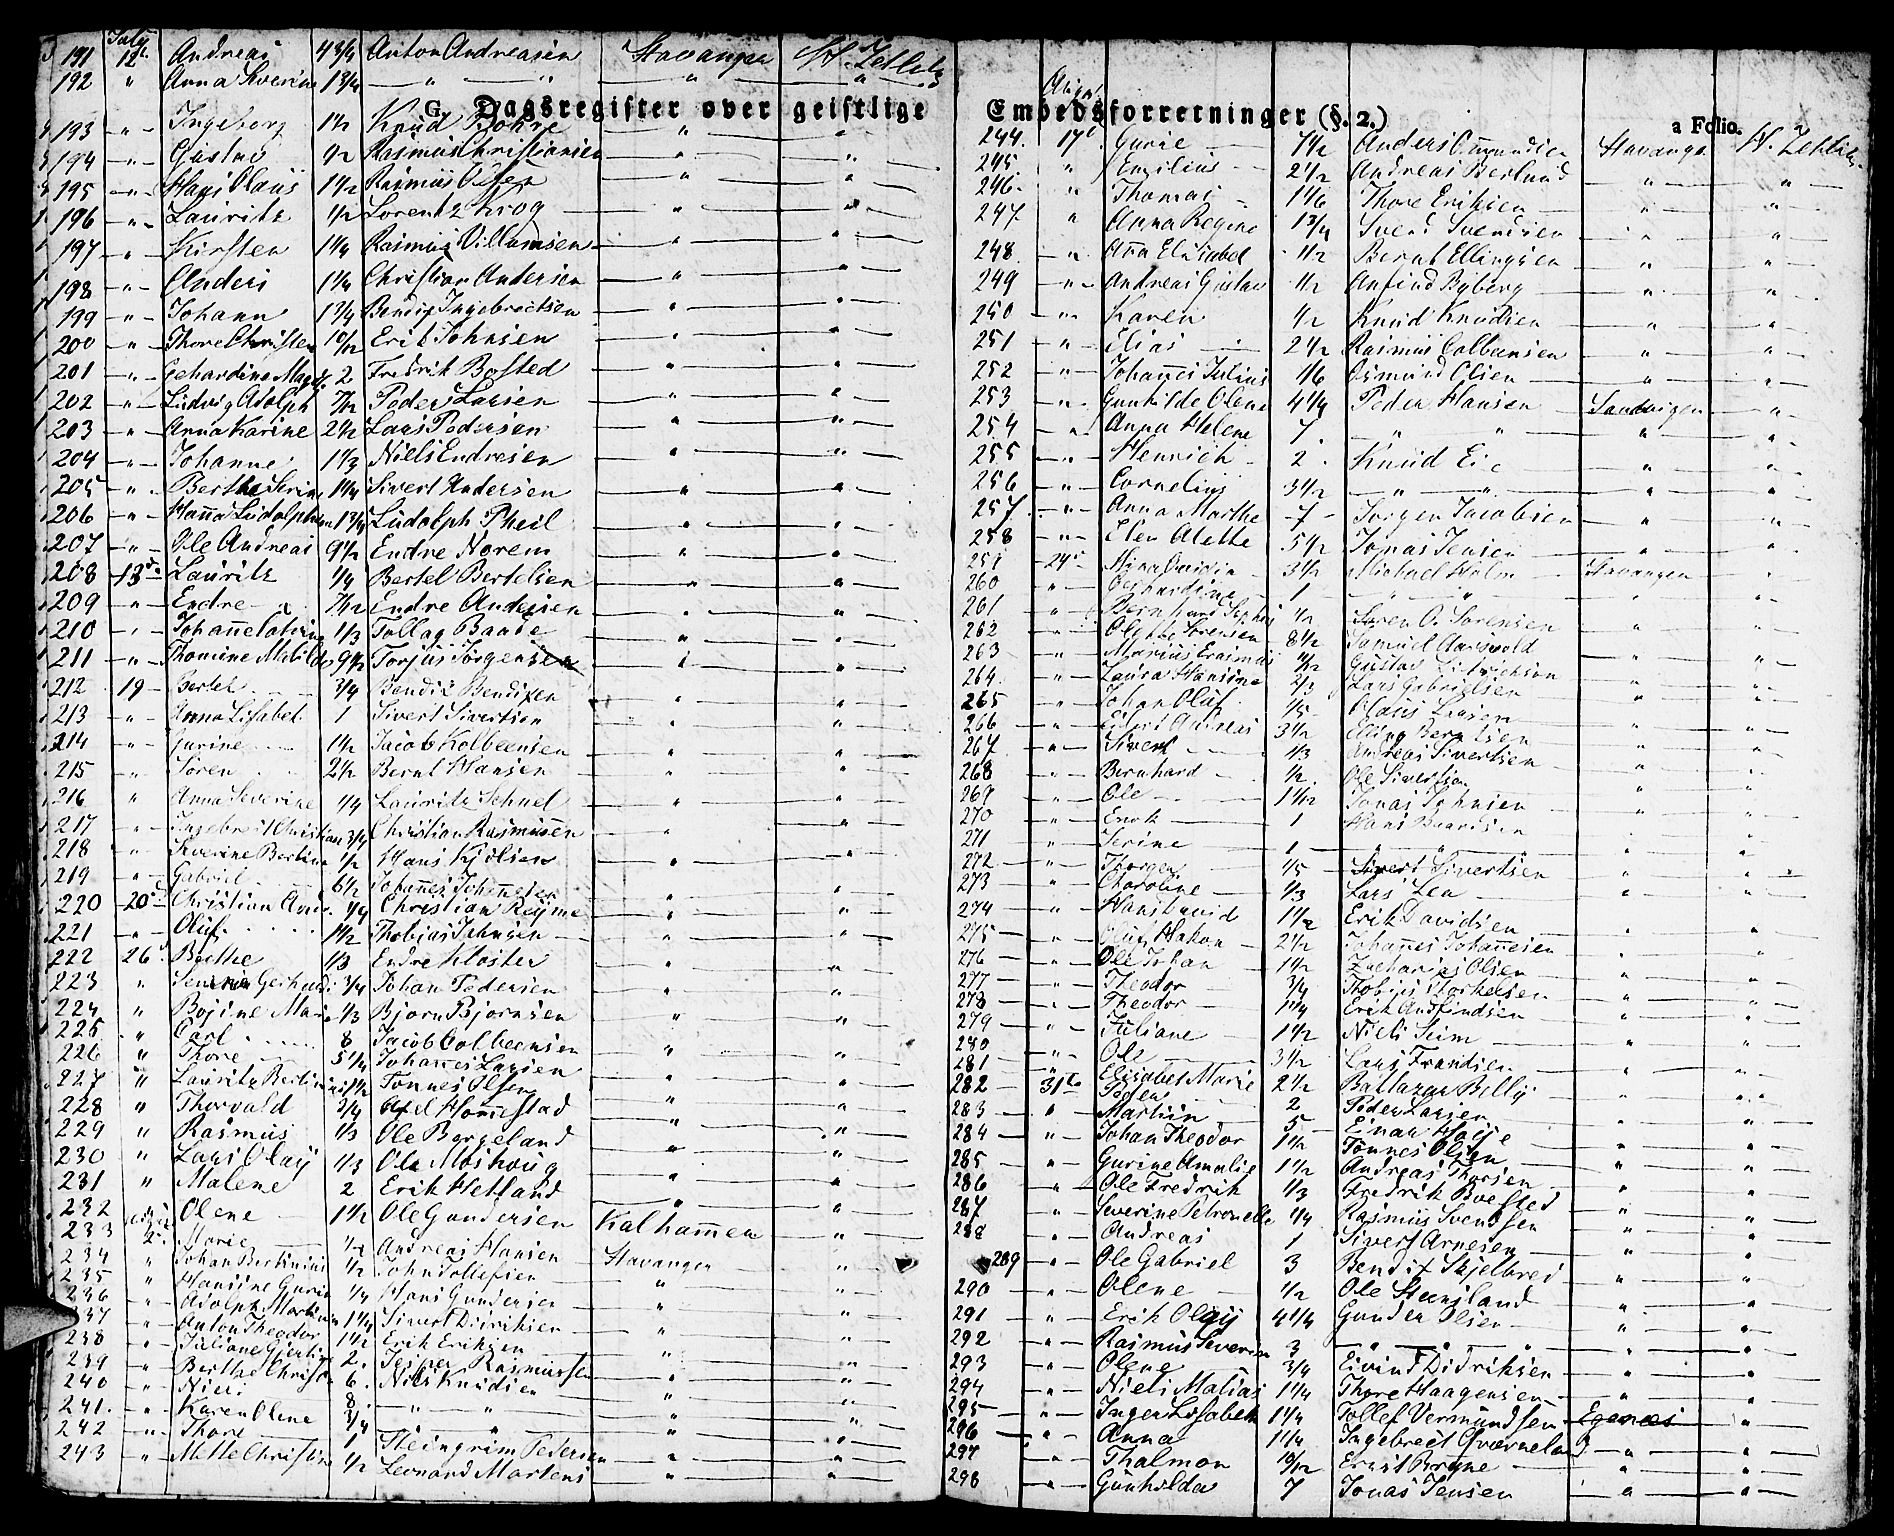 191 July 12t Andreas 4 3/4 Anton Andreasen Stavanger H. Zetlitz
192 " Anna Severine 1 3/4 " " " "
G. Dagsregister over geistlige
193 " Ingeborg 1 1/2 Knud " "
194 " Gustav 1/2 Rasmus Christiansen " "
195 " Hans Olaus 1 1/2 Rasmus Olsen " "
196 " Lauritz 1/2 Lorentz Krog " "
197 " Kirsten 1 1/4 Rasmus Villumsen " "
198 " Anders 1 1/4 Christian Andersen " "
199 " Johann 1 3/4 Bendix Ingebrectsen " "
200 " Thore Christen 10/12 Erik Johnsen " "
201 " Gehardine Magd. 2 Fredrik Bosted " "
202 " Ludvig Adolph 7/12 Peder Larsen " "
203 " Anna Karine 2 1/2 Lars Pedersen " "
204 " Johanne 1 1/3 Niels Endresen " "
205 " Berthe Serine 1 1/4 Sivert Andersen " "
206 " Hanna Ludolphine 1 3/4 Ludolph Pheil " "
207 " Ole Andreas 9 1/2 Endre Norem " "
208 13d Lauritz 1/4 Bertel Bertelsen " "
209 " Endre 7/12 Endre Andersen " "
210 " Johanne Catrine 1/3 Tollag Baade " "
211 " Thomine Matilde 9 1/2 Torjus Jørgensen " "
212 19 Bertel 3/4 Bendix Bendixen " "
213 " Anna Lisabet 1 Sivert Sivertsen " "
214 " Gurine 1 1/2 Jacob Kolbeensen " "
215 " Søren 2 1/2 Bernt Hansen " "
216 " Anna Severine 1/4 Lauritz Schnel " "
217 " Ingebret Christian 3/4 Christian Rasmussen " "
218 " Severine Bertine 1/2 Hans Kjølsen " "
219 " Gabriel 6 1/2 Johannes Johannesen " "
220 20d Christian Andr. 1/4 Christian Reyme " "
221 " Oluf 1 1/2 Thobias Johnsen " "
222 26d Berthe 1/3 Endre Kloster " "
223 " Gerhard 3/4 Johan Pedersen " "
224 " Bojine Marie 1/3 Bjørn Bjørnsen " "
225 " Carl 8 Jacob Colbeensen
226 " Thore 5 1/4 Johannes Larsen " "
227 " Lauritz Bertinius 1 1/2 Tønnes Olsen
228 " Thorvald 3/4 Axel Homestad " "
229 " Rasmus 1/3 Ole Bergeland " "
230 " Lars Olay 1/3 Ole Moshoug " "
231 " Malene 2 Erik Hetland " "
232 " Olene 1 1/2 Ole Gundersen Kalhammen "
233 2 Marie 1/2 Andreas Hansen Stavanger "
234 " Johan Bertinius 1/2 John Tollefsen " "
235 " Hansine Gurine 1/4 Hans Gundersen " "
236 " Adolph Martinius 1 1/4 Sivert Didriksen " "
237 " Anton Theodor 1 1/2 Erik Eriksen
238 " Juliane 2 Jesper Rasmussen " "
239 " Berthe Christ. 6 Nils Knudsen " "
240 " Niels 8 " " " "
241 " Karen Olene 3/4 " " " "
242 " Thore 1 Steingrim Pedersen " "
243 " Mette Christine 1/2 Leonard Martens " "
Embedsforretninger (§. 2.) a Folio.
244 Augst 17d Gurie 7 1/2 Anders Omundsen Stavanger H. Zetlitz
245 " Emilius 2 1/2 Andreas Berlund " "
246 " Thomas 1 1/6 Thore Eriksen " "
247 " Anna Regine 1 3/4 Svend Svendsen " "
248 " Ana Elisabet 1/2 Bernt Ellingsen " "
249 " Andreas Gustav 1/2 Anfind Byberg " "
250 " Karen 1/2 Knud Knudsen " "
251 " Elias 2 1/2 Rasmus Colbeensen " "
252 " Johannes Julius 1/6 Osmund Olsen " "
253 " Gunhilde Olene 4 1/4 Peder Hansen Sandvigen "
254 " Anna Helene 7 " " " "
255 " Henrich 2 Knud Eie " "
256 " Cornelius 3 1/2 " " " "
257 " Anna Marthe 7 Jørgen Jacobsen " "
258 " Elen Alette 5 1/2 Jonas Jensen " "
259 24d 3 1/2 Michael Holm Stavanger "
260 " Gerhardine 1 " " " "
261 " Bernhard Sophus 1/2 Søren O. Sørensen " "
262 " Olethe Sørensen 8 1/2 Samuel Aarsvold
263 " Marius Erasmus 11/12 Gustav Didrichson " "
264 " Laura Hansine 2/3 Lars Gabrielsen " "
265 " Johan Oluf 1/5 Olaus Larsen " "
266 " Andreas 3 1/2 Elling Berntsen " "
267 " Sivert 1/3 Andreas Sivertsen " "
268 " Bernhard 1/2 Ole Sivertsen " "
269 " Ole 1 1/12 Jonas Johnsen " "
270 " Enok 1 Hans
271 " Serine 1 " " " "
272 " Thorger 1/5 Sivert Sivertsen " "
273 " Charoline 1/3 Lars Lea " "
274 " Hans David 1 1/2 Erik Davidsen " "
275 " Hakon 2 1/2 Johannes Johannesen " "
276 " Ole Johan 1 1/2 Zacharias Olsen " "
277 " Theodor 3/4 Thobias Thorkelsen " "
278 " Theodor 1 1/4 Erik Andfindsen " "
279 " Juliane 1 1/2 Niels Seim " "
280 " Ole 3 1/2 Lars Frandsen " "
281 " Elisabet Marie 2 1/2 Baltazar Belly " "
282 31te Peder 2 Peder Larsen
283 " Martin 5 Einar Høije " "
284 " Johan Theodor 1 1/2 Tønnes Olsen " "
285 " Gurine Amalie 1 1/2 Andreas Thorsen " "
286 " Ole Fredrik 1/3 Fredrik Boested " "
287 " Severine Petronelle 1/4 Rasmus Svendsen " "
288 " Andreas 1 Sivert Arnesen " "
289 " Ole Gabriel 3 Bendix Skjelbred " "
290 " Olene 1/2 Ole Steensland " "
291 " Erik Olay 4 1/4 Gunder Olsen " "
292 " Rasmus Severin 3 " " " "
293 " Olene 3/4 Eivind Didriksen " "
294 " Niels Matias 1 1/4 Thore Haagensen " "
295 " Inger Lisabeth 1 1/4 Tollef Vermundsen Egenes "
296 " Anna 1 1/4 Ingebrect Qværneland " "
297 " Thalmon 10/12 Ernst Bryne " "
298 " Gunhilda 7 Jonas Jensen " "